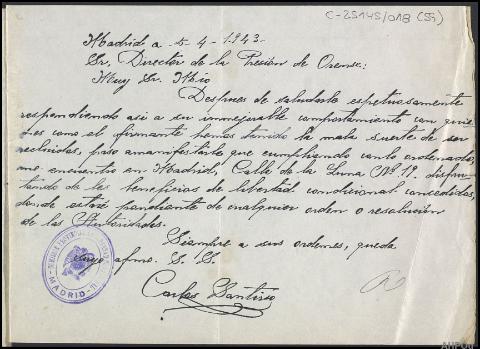 C-25145/018 (55)
Madrid a 5-4-1943.
Sr. Director de la Prision de Orense:
Muy Sr. Mio
Despues de saludarle espetuosamente
respondiendo asi a su inmejorable comportamiento con quie-
nes como el firmante hemos tenido la mala suerte de ser
recluidos, paso amanifestarle que cumpliendo con lo ordenado,
me encuentro en Madrid, Calle de la Luna Nº 19. disfru-
tando de los beneficios de libertad condicional concedidos,
donde estaré pendiente de cualquier orden o resolucion
de las Autoridades.
Siempre a sus ordenes, queda
suyo afmo. S. S.
Carlos Santiso
MADRID
AHPOu